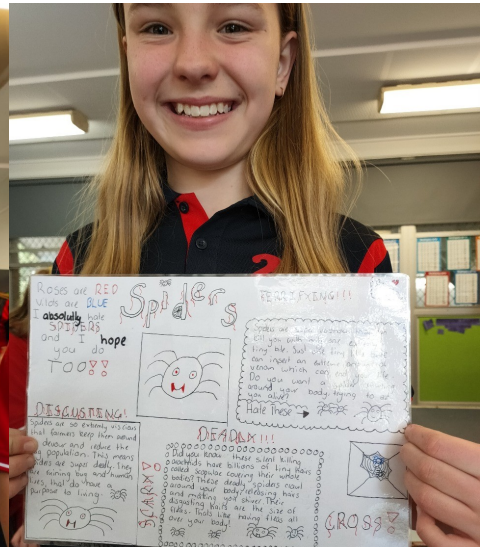 Spiders
Roses are RED
vilots are BLUE
I absolutly hate
SPIDERS
and I hope
you do
TOO!!
TERRIFYING!!!
Spiders are super
kill you with only one
tiny bite. Just one tiny little bite
can inject an extreme amount of
venom which can
Do you want a spider
around your body, trying to
you alive?
Hate These
DISGUSTING!
Spiders are so extremly viscious
that farmers keep them around
devour and reduce the
population. This means
spiders are super deadly. They
are ruining bug and human
lives, that do have a
purpose to living
DEADLY!!!
Did you know these silent killing
have billions of tiny hairs
called Scopulae covering their whole
bodies? These deadly spiders
around your body releasing hairs
and making you shiver. Their
disgusting hairs are the size of
fleas. Thats like having fleas all
over your body!
SCARY
CROSS